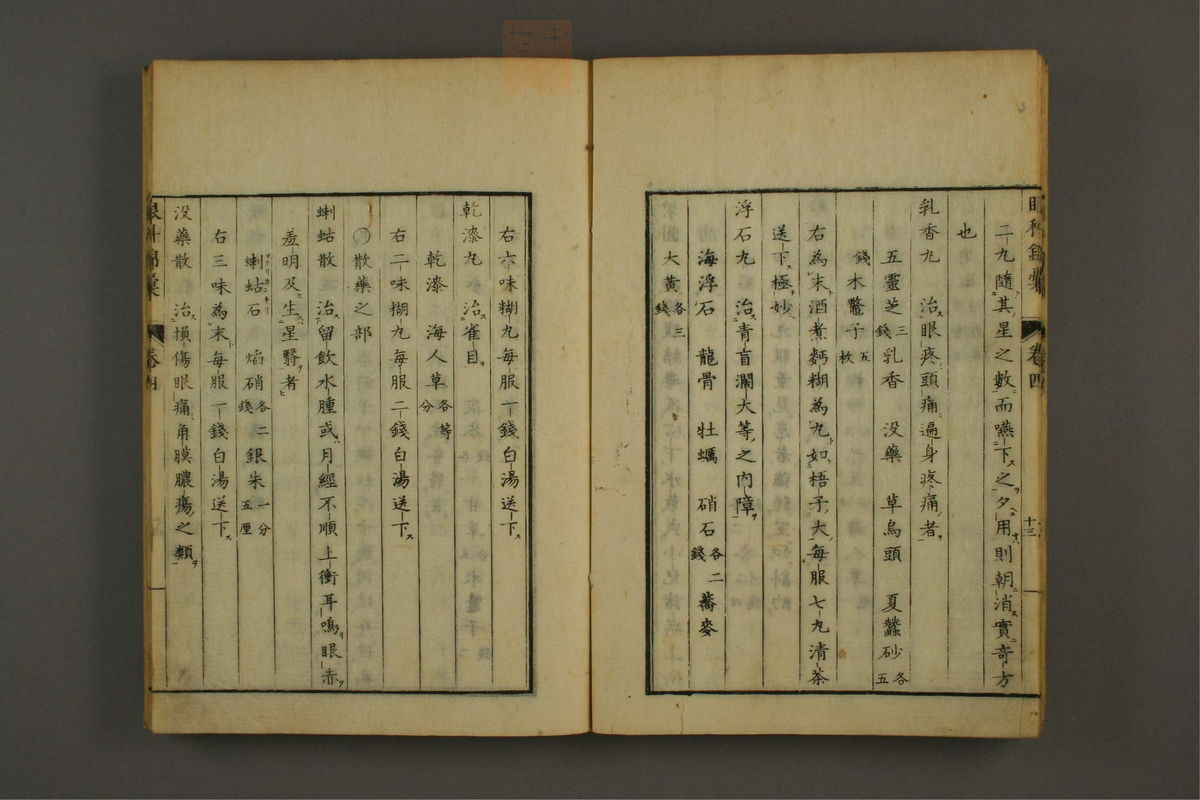 眼科錦囊 卷四 十三
二丸隨其星之數而嚥下之夕用則朝消實奇方
也
乳香丸 治眼疼頭痛遍身疼痛者
五靈芝三錢 乳香 沒藥 草烏頭 夏蠶砂各五
錢 木鼈子五枚
右為末酒煮麪糊為丸如梧子大每服七丸清茶
送下極妙
浮石丸 治青盲濶大等之內障
海浮石 龍骨 牡蠣 硝石各二錢 蕎麥
大黃各三錢
右六味糊丸每服一錢白湯送下
乾漆丸 治雀目
乾漆 海人草各等分
右二味糊丸每服二錢白湯送下
○散藥之部
蝲蛄散 治留飲水腫或月經不順上衝耳鳴眼赤
羞明及生星翳者
蝲蛄石ザリカニ 焰硝各二錢 銀朱一分五厘
右三味為末每服一錢白湯送下
没藥散 治損傷眼痛角膜膿瘍之類
眼科錦囊 卷四